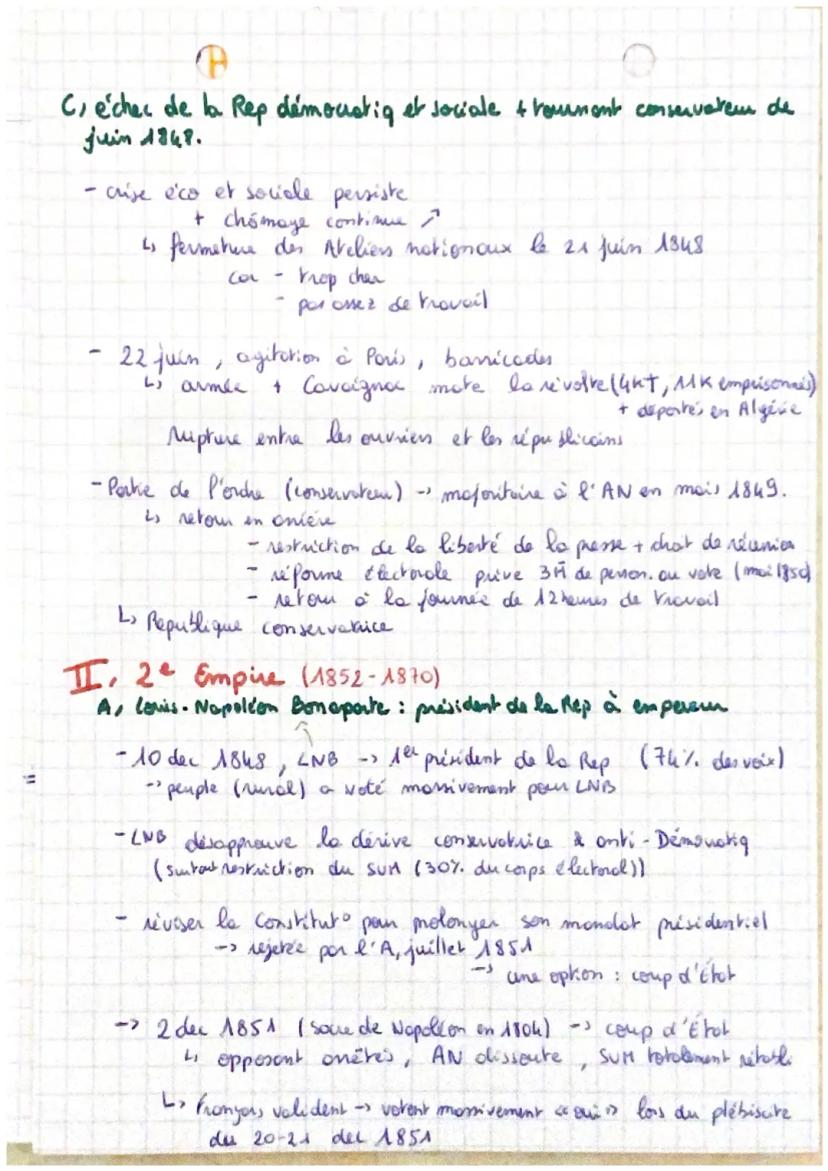 C, échec de la Rep démocratiq et sociale + tournant conservateur de
juin 1848.
- crise éco et sociale persiste
+ chômage continue ↗
↳ fermeture des Ateliers nationaux le 21 juin 1848
car - trop cher
- pas assez de travail
- 22 juin, agitation à Paris, barricades
↳ armée + Cavaignac mate la révolte (4K†, 11K emprisonnés)
+ déportés en Algérie
Rupture entre les ouvriers et les républicains
- Partie de l'ordre (conservateur) → majoritaire à l'AN en mais 1849.
↳ retour en arrière
- restriction de la liberté de la presse + droit de réunion
- réforme électorale prive 3M de person. au vote (mai 1850)
- retour à la journée de 12 heures de travail
↳ République conservatrice
II, 2e Empire (1852-1870)
A, Louis-Napoléon Bonaparte : président de la Rep à empereur
- 10 dec 1848, LNB → 1er président de la Rep (74% des voix)
→ peuple (rural) a voté massivement pour LNB
- LNB désapprouve la dérive conservatrice & anti-Démocratiq
(surtout restriction du SUM (30% du corps électoral))
- réviser la Constitut° pour prolonger son mandat présidentiel
→ rejetée par l'A, juillet 1851
→ une option : coup d'État
→ 2 dec 1851 (sacre de Napoléon en 1804) → coup d'État
↳ opposant arrêtés, AN dissoute, SUM totalement rétabli
↳ Français valident → votent massivement «oui» lors du plébiscite
du 20-21 dec 1851